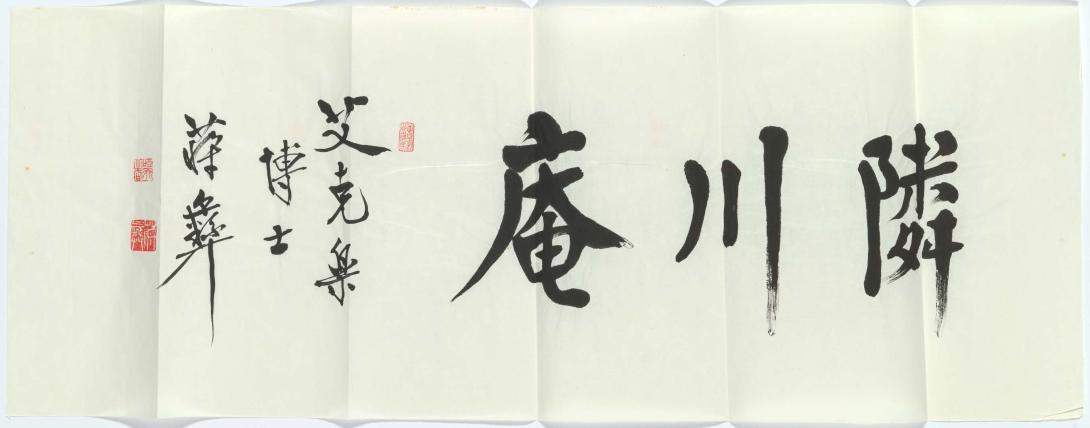 隣川庵
艾克樂
博士
蔣彝